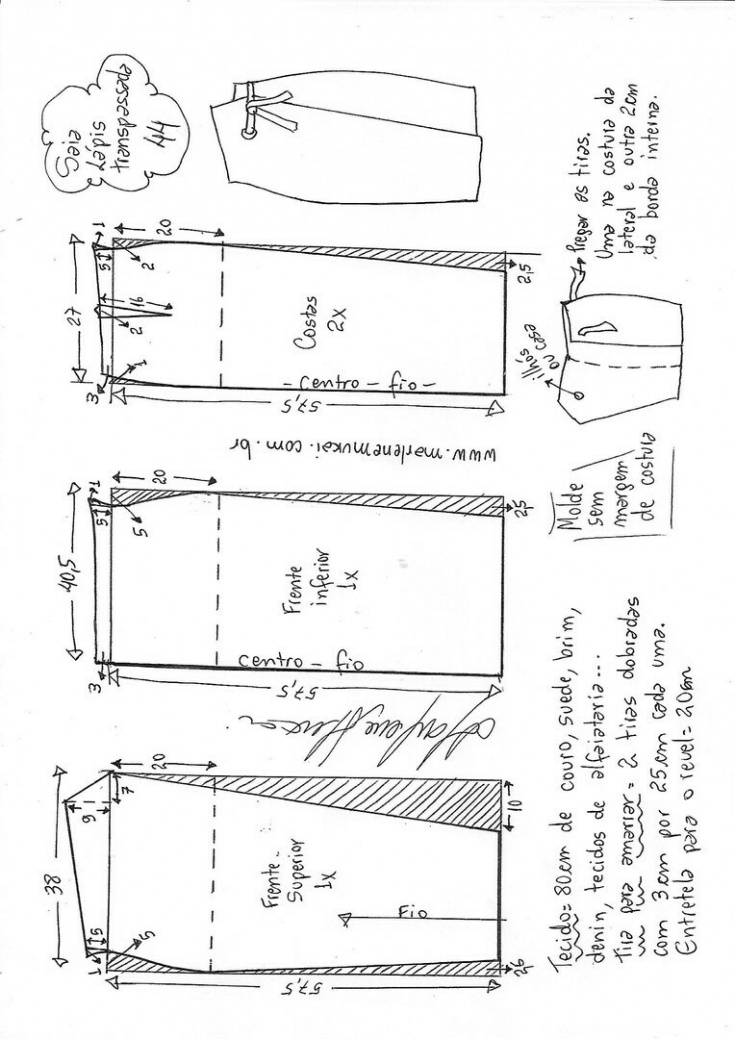 Saia
Lápis
transpassada
44
27
1
5
20
2
16
2
1
3
Costas
2x
- centro - fio -
57,5
2,5
ilhós
ou casa
Pregar as tiras.
Uma na costura da
lateral e outra 2cm
da borda interna.
www.marlenemukai.com.br
40,5
1
5
20
5
3
Frente
inferior
1x
centro - fio
57,5
2,5
Molde
sem
margem
de costura
38
9
7
20
5
1
5
Frente
Superior
1x
Fio
57,5
10
Tecido= 80cm de couro, suede, brim,
denin, tecidos de alfaiataria...
Tira para amarrar= 2 tiras dobradas
com 3cm por 25cm cada uma.
Entretela para o revel= 20cm